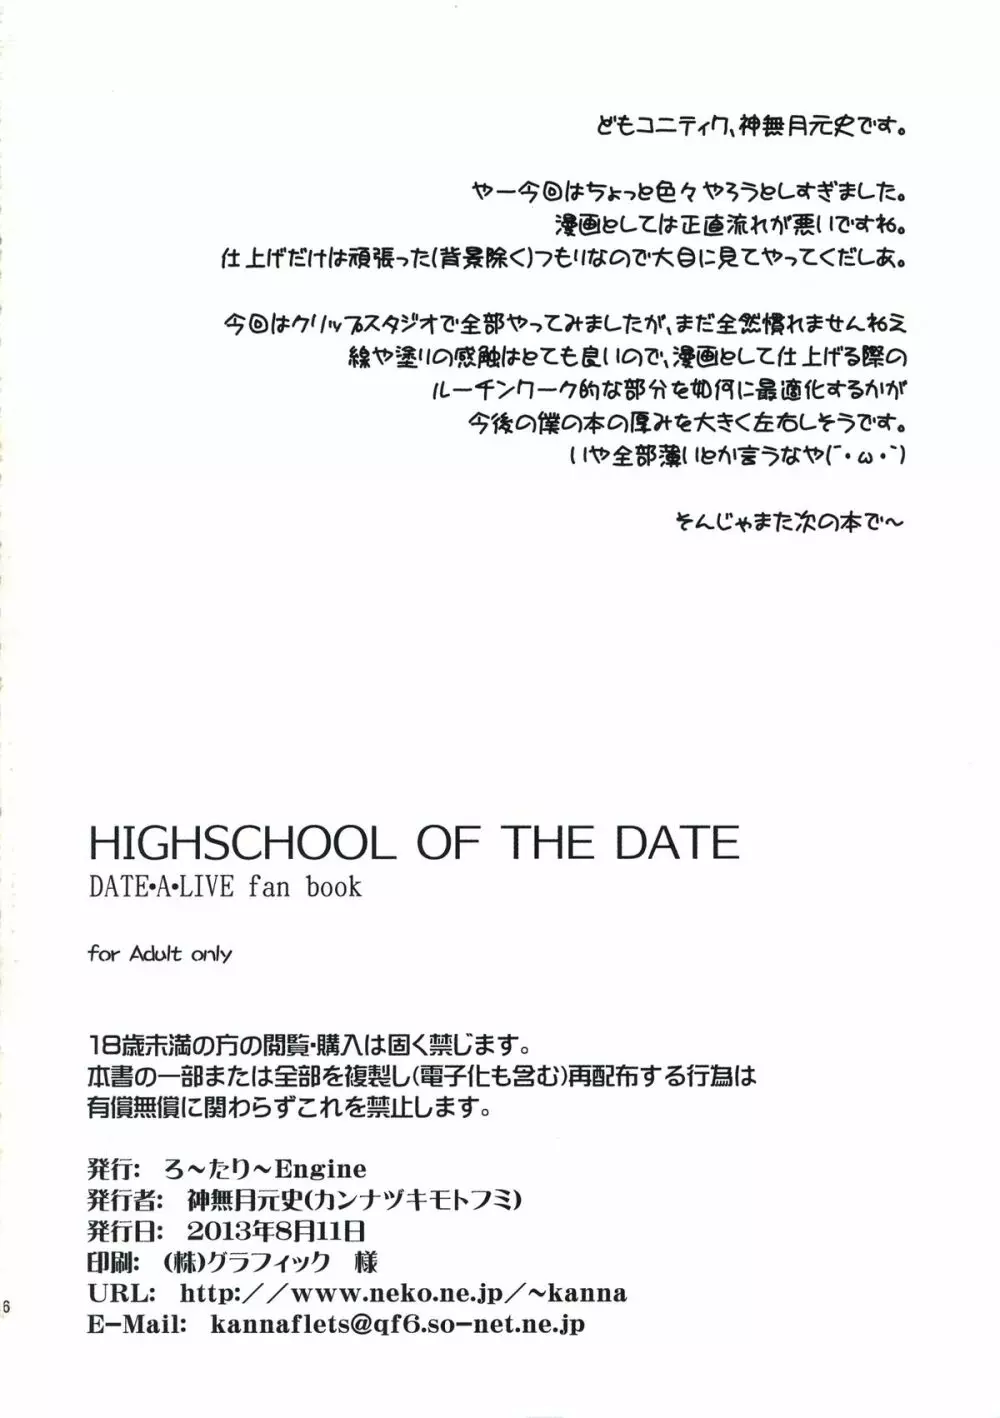 どもコニティク、神無月元史です。
やー今回はちょっと色々やろうとしすぎました。
漫画としては正直流れが悪いですね。
仕上げだけは頑張った(背景除く)つもりなので大目に見てやってくだしあ。
今回はクリップスタジオで全部やってみましたが、まだ全然慣れませんねえ
線や塗りの感触はとても良いので、漫画として仕上げる際の
ルーチンワーク的な部分を如何に最適化するかが
今後の僕の本の厚みを大きく左右しそうです。
いや全部薄いとか言うなや(´・ω・`)
そんじゃまた次の本で～
HIGHSCHOOL OF THE DATE
DATE•A•LIVE fan book
for Adult only
18歳未満の方の閲覧・購入は固く禁じます。
本書の一部または全部を複製し(電子化も含む)再配布する行為は
有償無償に関わらずこれを禁止します。
発行: ろ～たり～Engine
発行者: 神無月元史(カンナヅキモトフミ)
発行日: 2013年8月11日
印刷: (株)グラフィック 様
URL: http://www.neko.ne.jp/~kanna
E-Mail: kannaflets@qf6.so-net.ne.jp
6